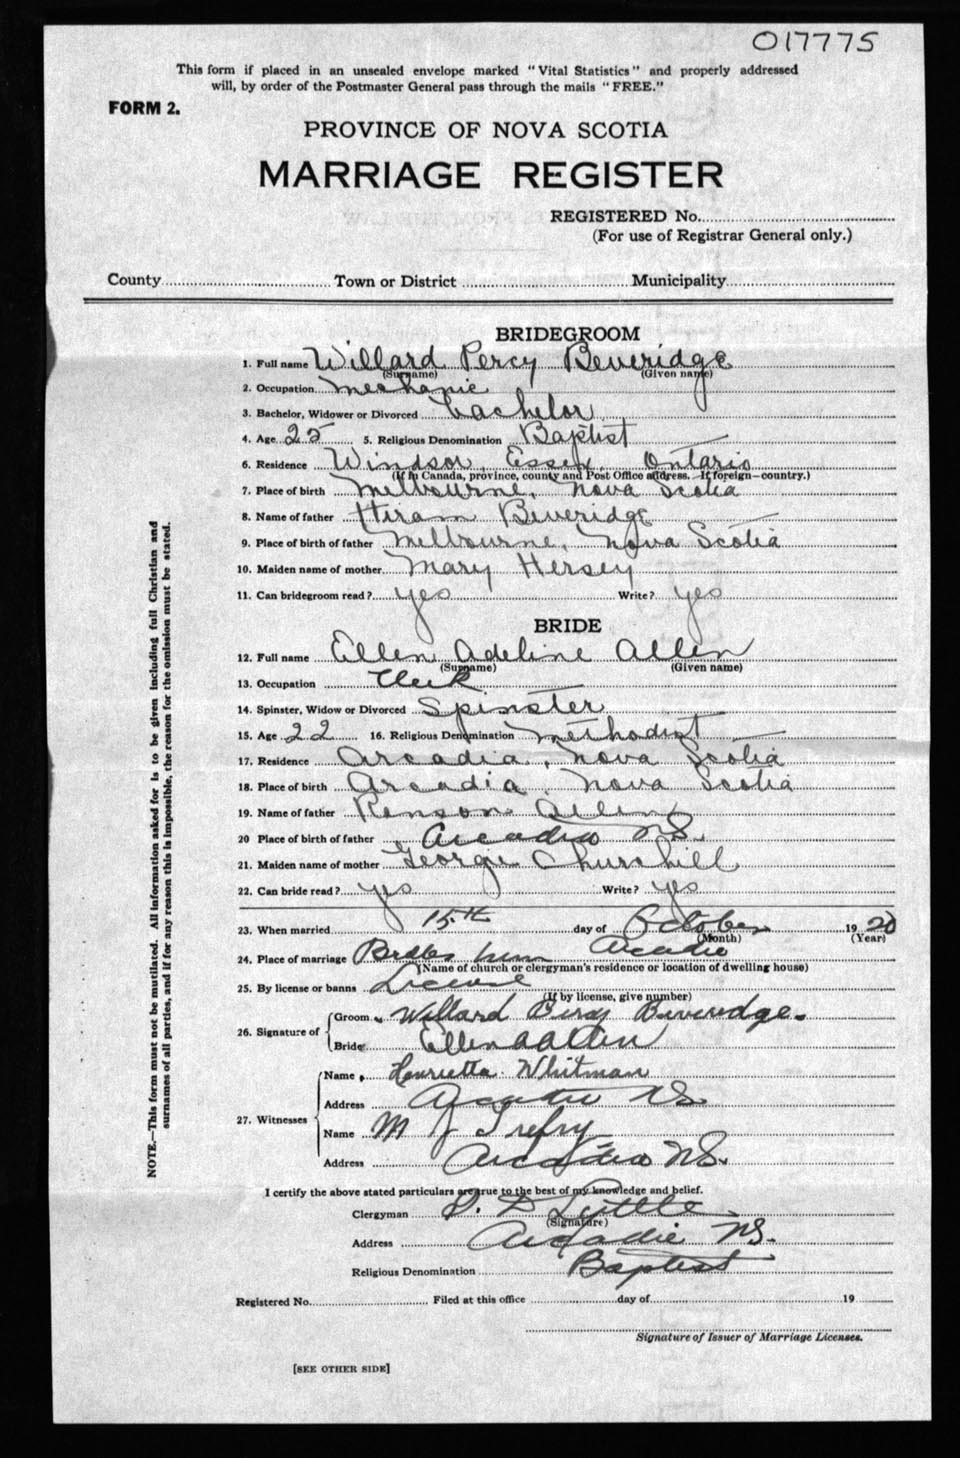 017775
This form if placed in an unsealed envelope marked "Vital Statistics" and properly addressed
will, by order of the Postmaster General pass through the mails "FREE."
FORM 2.
PROVINCE OF NOVA SCOTIA
MARRIAGE REGISTER
REGISTERED No.
(For use of Registrar General only.)
County Town or District Municipality
BRIDEGROOM
1. Full name Willard Percy Beveridge
(Surname) (Given name)
2. Occupation Mechanic
3. Bachelor, Widower or Divorced bachelor
4. Age 25 5. Religious Denomination Baptist
6. Residence Windsor, Essex, Ontario
(If in Canada, province, county and Post Office address. If foreign—country.)
7. Place of birth Melbourne, Nova Scotia
8. Name of father Hiram Beveridge
9. Place of birth of father Melbourne, Nova Scotia
10. Maiden name of mother Mary Hersey
11. Can bridegroom read? yes Write? yes
BRIDE
12. Full name Ellen Adeline Allen
(Surname) (Given name)
13. Occupation Clerk
14. Spinster, Widow or Divorced Spinster
15. Age 22 16. Religious Denomination Methodist
17. Residence Arcadia, Nova Scotia
18. Place of birth Arcadia, Nova Scotia
19. Name of father Ranson Allen
20 Place of birth of father Arcadia NS.
21. Maiden name of mother Georgie Churchill
22. Can bride read? yes Write? yes
23. When married 15th day of October 1920
(Month) (Year)
24. Place of marriage Arcadia
(Name of church or clergyman's residence or location of dwelling house)
25. By license or banns License
(If by license, give number)
26. Signature of Groom Willard Percy Beveridge.
Bride Ellen A Allen
27. Witnesses Name Henrietta Whitman
Address Arcadia NS
Name M J Trefry
Address Arcadia NS.
I certify the above stated particulars are true to the best of my knowledge and belief.
Clergyman D
(Signature)
Address Arcadia NS.
Religious Denomination Baptist
Registered No. Filed at this office day of 19
Signature of Issuer of Marriage Licenses.
[SEE OTHER SIDE]
NOTE.—This form must not be mutilated. All information asked for is to be given including full Christian and
surnames of all parties, and if for any reason this is impossible, the reason for the omission must be stated.